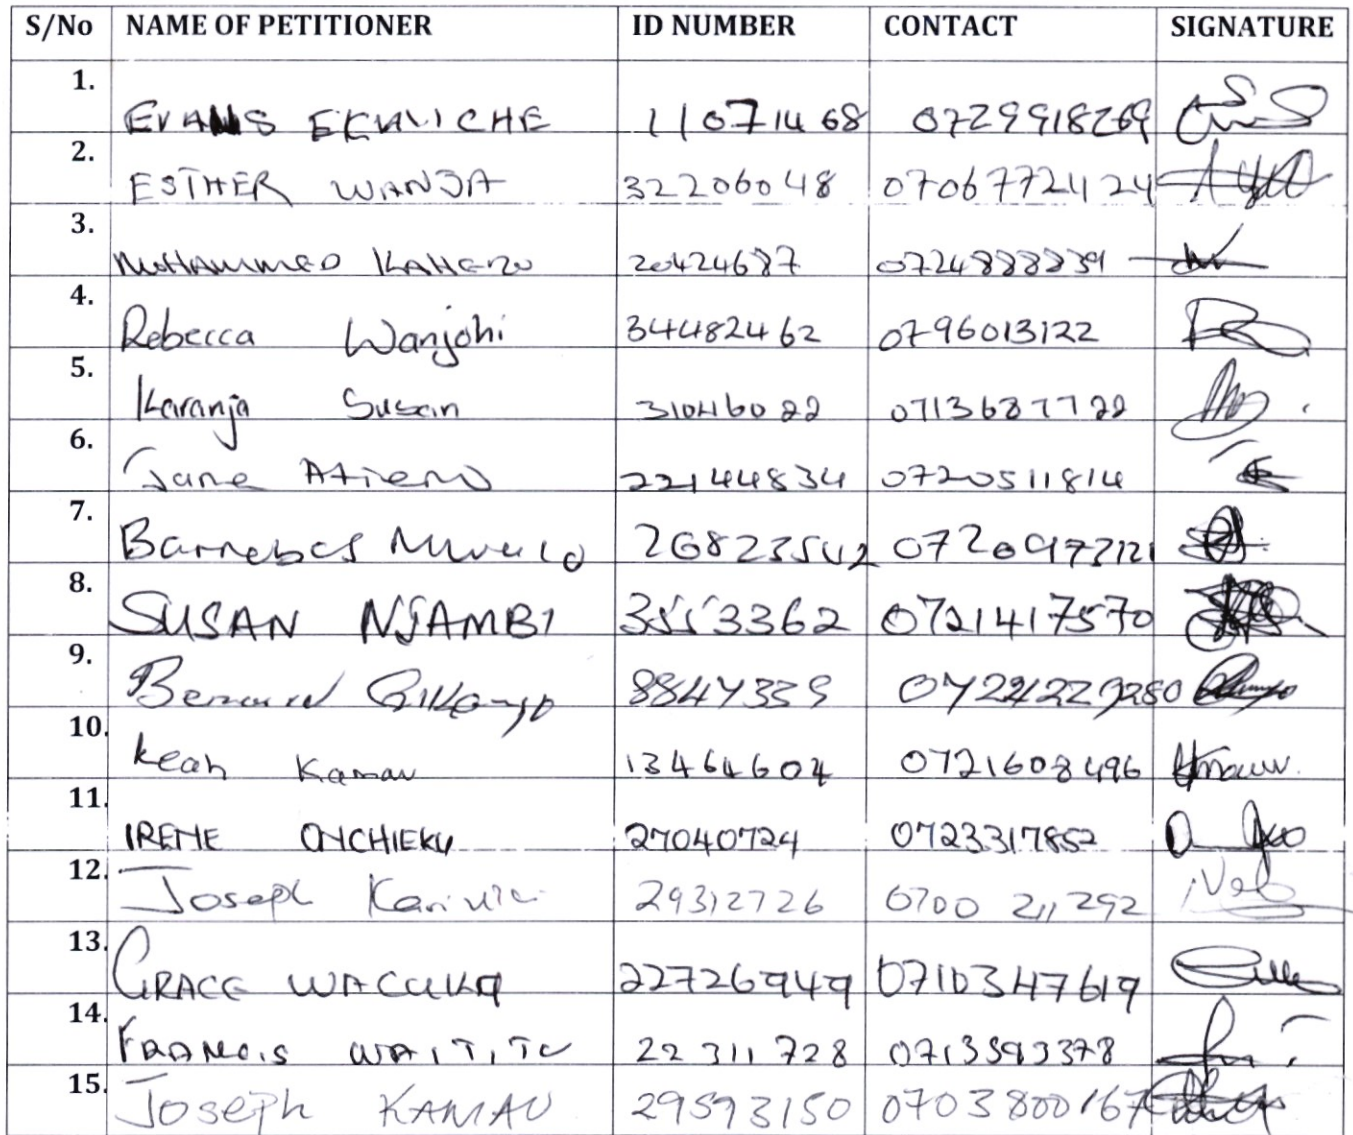 S/No NAME OF PETITIONER ID NUMBER CONTACT SIGNATURE
1. EVANS EKAVICHE 11071468 0729918269
2. ESTHER WANJA 32206048 0706772424
3. MOHAMMED KAHERO 20424687 0724888839
4. Rebecca Wanjohi 34482462 0796013122
5. Karanja Susan 31046022 0713687722
6. Jane Atieno 22144834 0720511814
7. Barnebas 26823542 0720973121
8. SUSAN NJAMBI 3553362 0721417570
9. 8847339
10. Leah Kamau 13464604 0721608496
11. IRENE ONCHIEKU 27040724 0723317852
12. Joseph Kariuki 29312726 0700 211292
13. GRACE WACUKA 22726949 0710347619
14. FRANCIS WAITITU 22311728 0713593378
15. Joseph KAMAU 29593150 0703800167